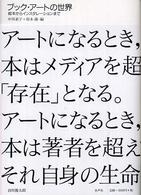 ブック・アートの世界
絵本からインスタレーションまで
アートになるとき,
本はメディアを超
「存在」となる。
アートになるとき,
本は著者を超え
それ自身の生命